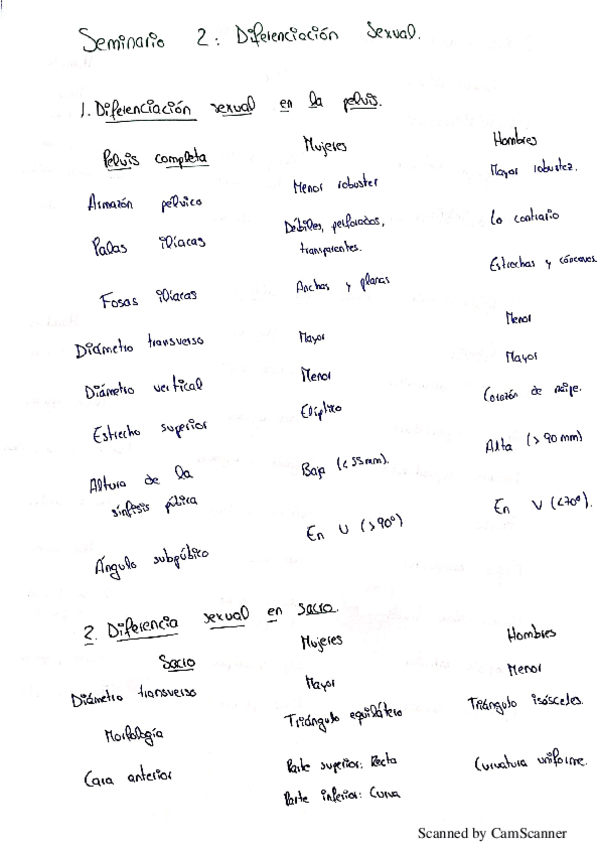 Seminario 2: Diferenciación Sexual.
1. Diferenciación sexual en la pelvis.
Pelvis completa Mujeres Hombres
Armazón pélvico Menor robustez Mayor robustez.
Palas ilíacas Débiles, perforadas, Lo contrario
transparentes.
Fosas ilíacas Anchas y planas Estrechas y cóncavas.
Diámetro transverso Mayor Menor
Diámetro vertical Menor Mayor
Estrecho superior Elíptico Corazón de naipe.
Altura de la Baja (<55mm). Alta (>90mm)
sínfisis púbica
Ángulo subpúbico En U (>90º) En V (<70º).
2. Diferencia sexual en sacro.
Sacro Mujeres Hombres
Diámetro transverso Mayor Menor
Morfología Triángulo equilátero Triángulo isósceles.
Cara anterior Parte superior: Recta Curvatura uniforme.
Parte inferior: Curva
Scanned by CamScanner